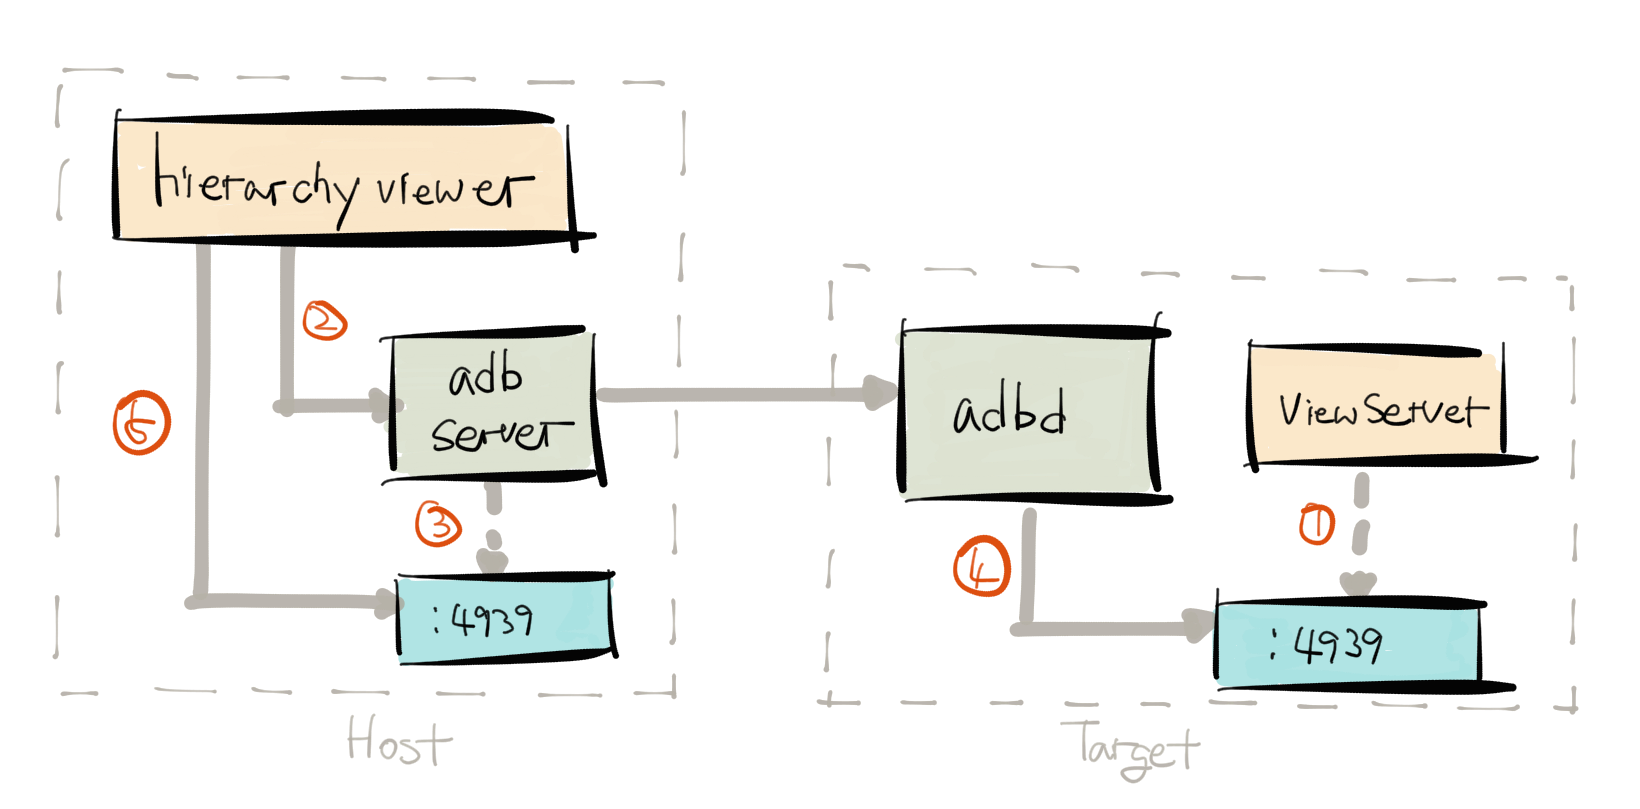 hierarchy viewer
②
adb
server
⑤
③
:4939
Host
adbd
View Server
①
④
:4939
Target